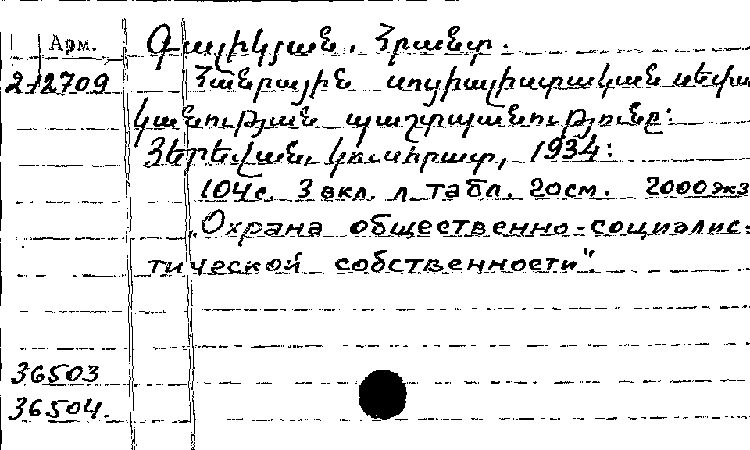 Арм. Գալիկյան, Հրանտ.
2-12709 Հանրային սոցիալիստական սեփա
կանության պաշտպանությունը:
Յերեվան, Կուսհրատ, 1934:
104с. 3 вкл. л. табл. 20см. 2000экз
„Охрана общественно-социалис-
тической собственности".
36503
36504.